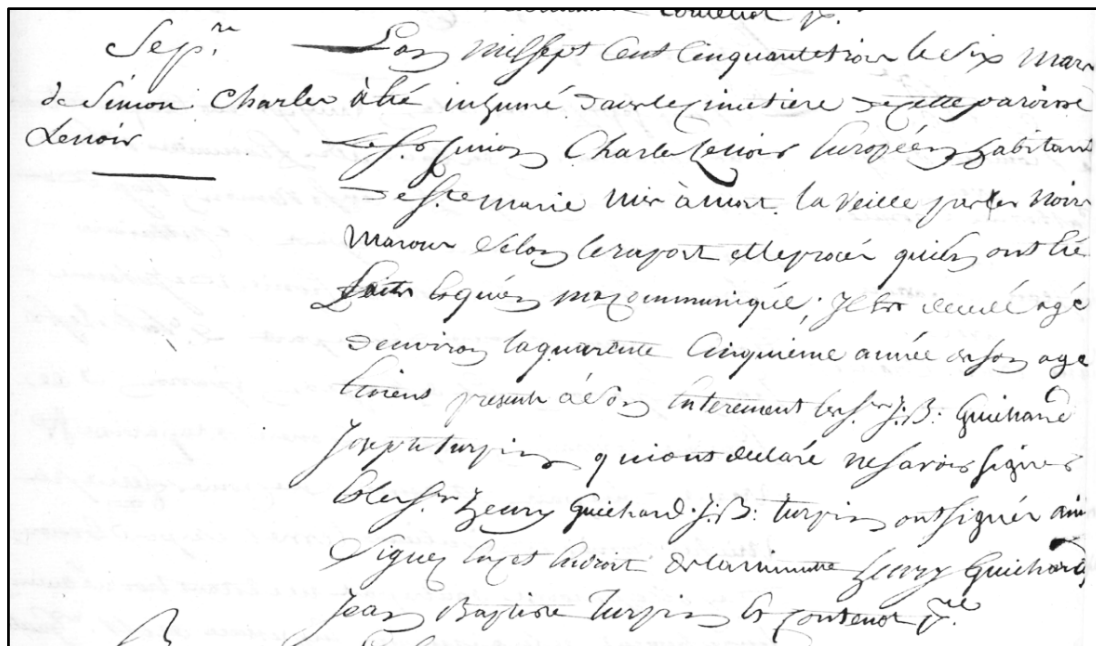 Sep.re
de Simon Charles
Lenoir
L'an mil sept cent cinquante trois le six mars
à été inhumé dans le cimetière de cette paroisse
le S.r Simon Charle Lenoir Européen habitant
de S.te marie mis à mort la veille par les noirs
marons selon le raport et le procés qui en ont été
faits
il est décédé agé
d'environ la quarente cinquième année de son age
présents à son enterement les S.rs J.B. Guichard
Joseph turpin qui ont declaré ne savoir signer
et les S.rs henry Guichard J.B. turpin ont signés ainsi
signez en cet endroit de la minute henry Guichard
Jean Baptiste Turpin et Contenot p.tre